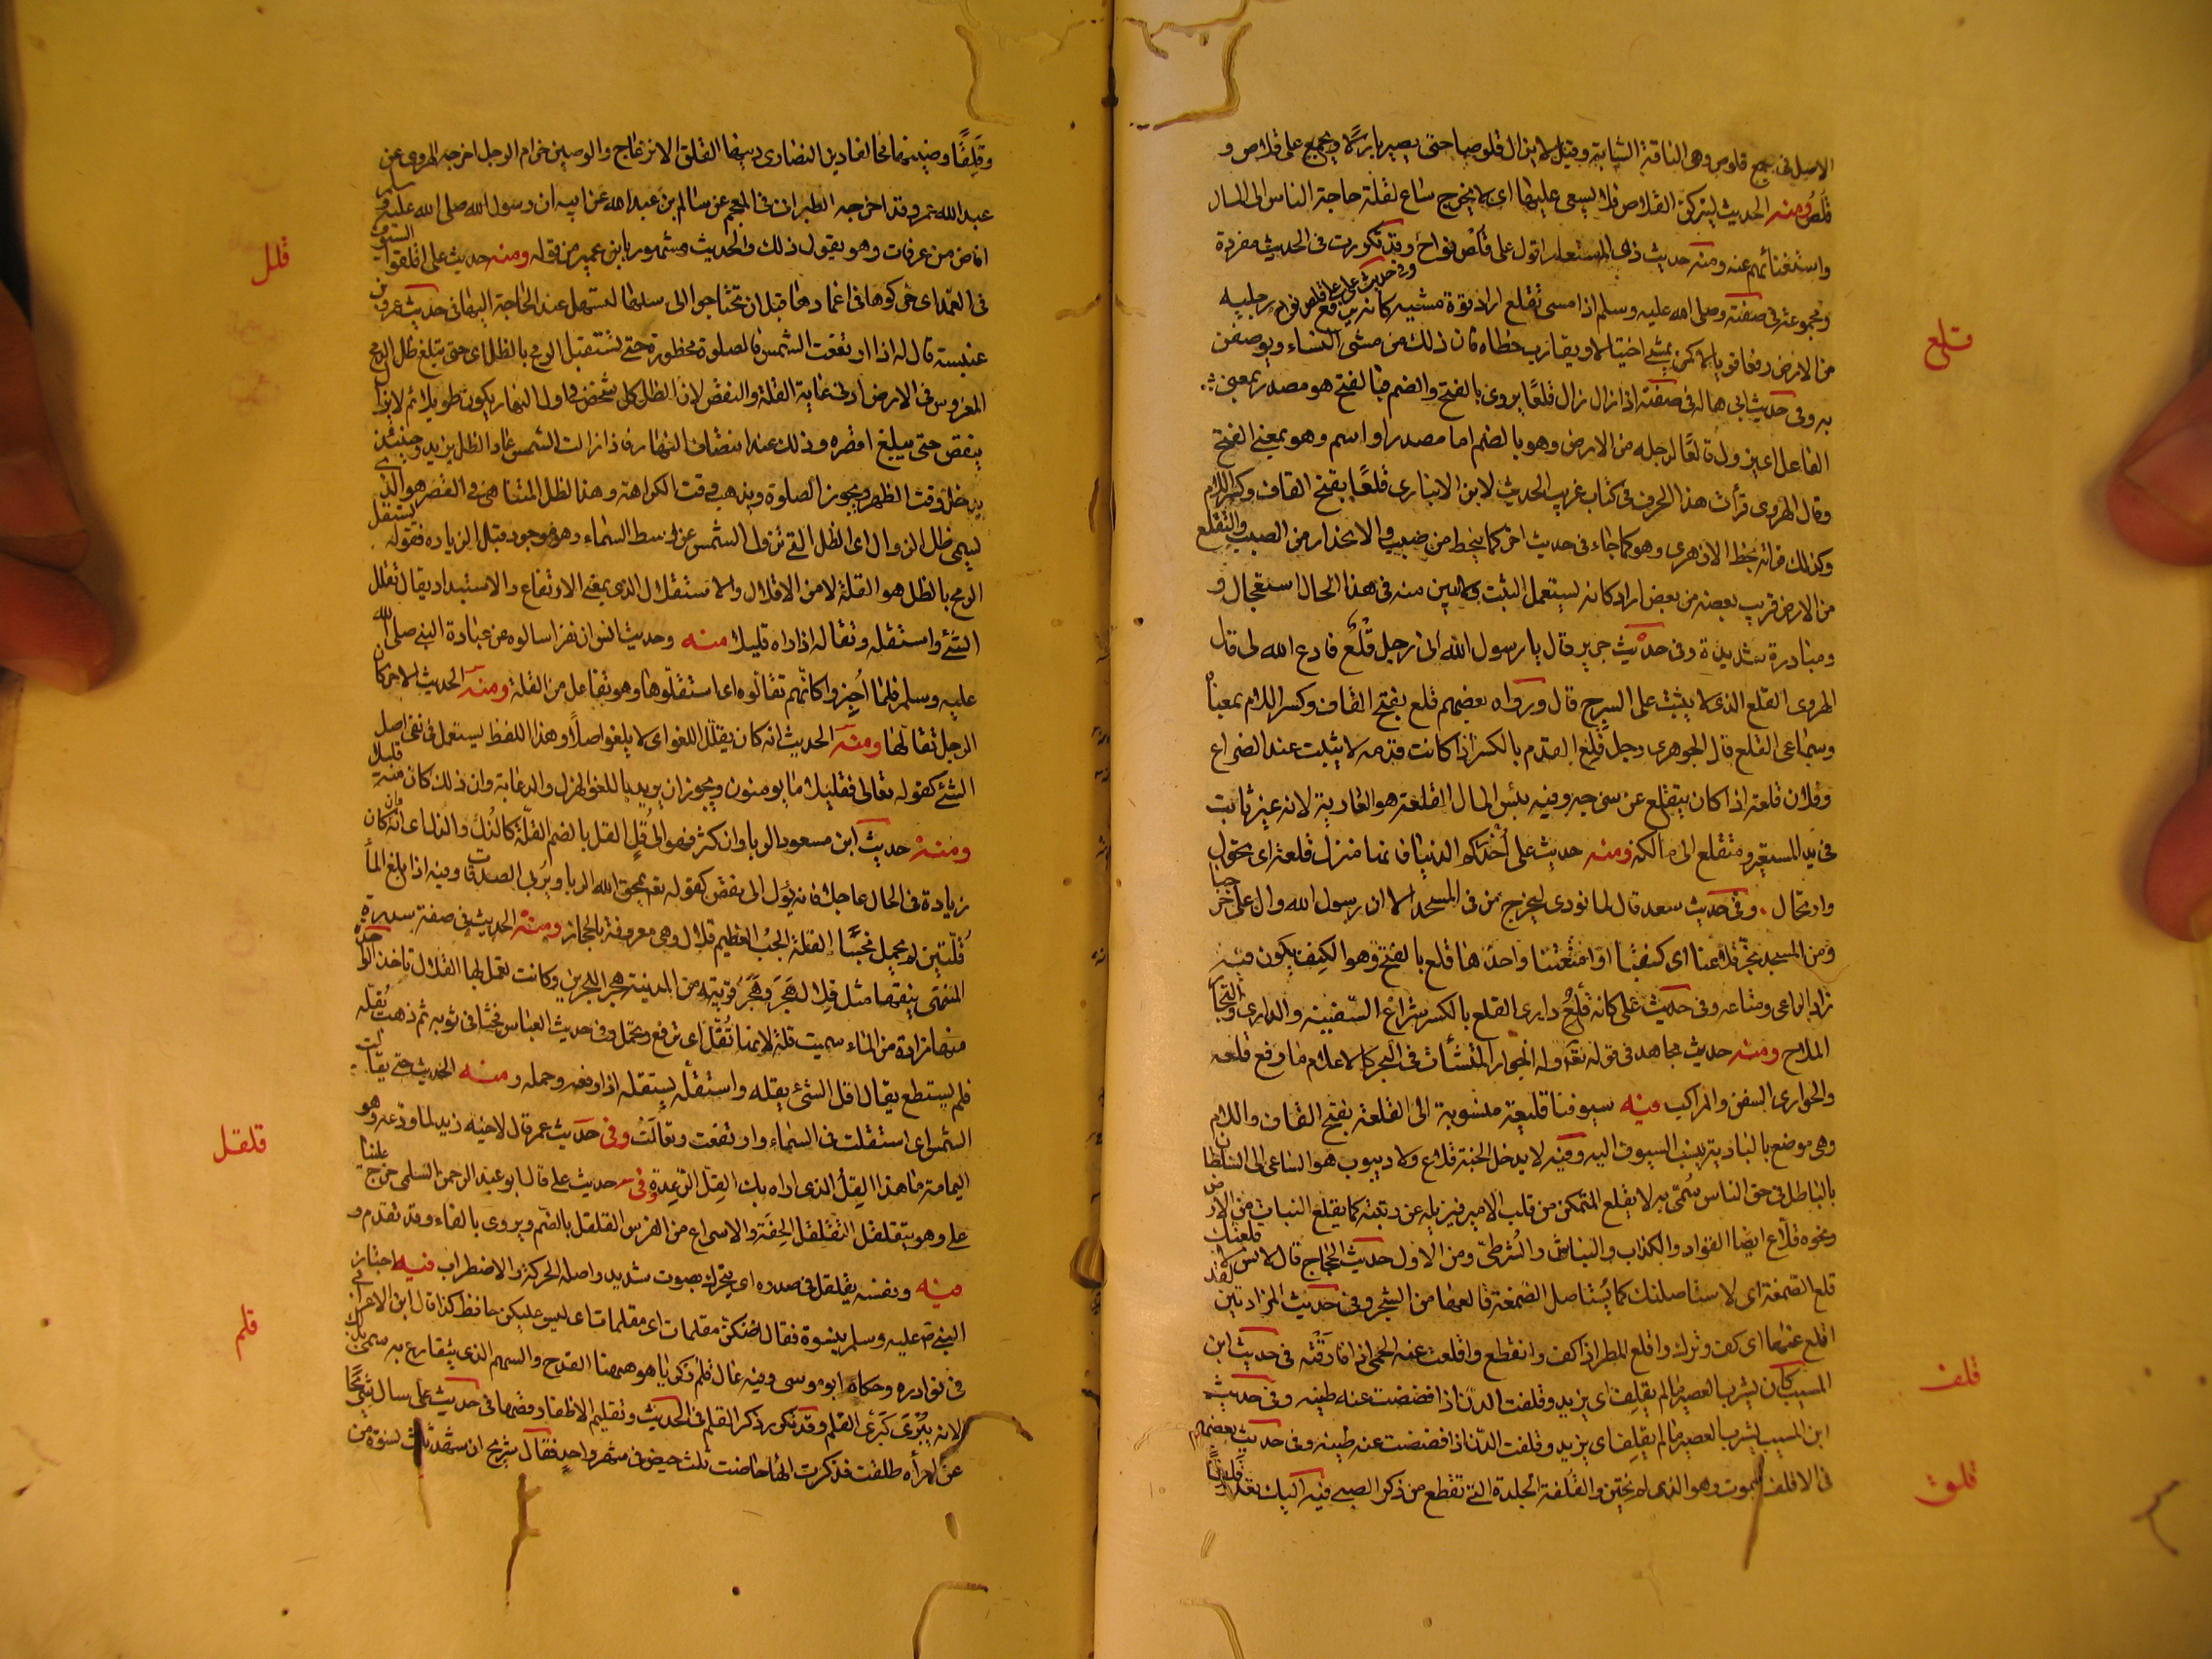 الاصل في جمع قلوص وهي الناقة الشابة وقيل لا يزال قلوصا حتى يصير بازلا ويجمع على قلاص و
قلص ومنه الحديث ليتركن القلاص فلا يسعى عليها اى لا يخرج ساع لقلة حاجة الناس الى المال
واستغنائهم عنه ومنه حديث ذى المشعار اتوك على قلص نواج وقد تكررت فى الحديث مفردة
وفى حديث على على قلص نواج
ومجموعة فى صفته صلى الله عليه وسلم اذا مشى تقلع اراد قوة مشيه كانه يرفع رجليه
من الارض رفعا قويا لا كمن يمشى اختيالا ويقارب خطاه فان ذلك من مشى النساء ويوصفن
به وفى حديث ابى هالة فى صفته اذا زال زال قلعا يروى بالفتح والضم فبالفتح هو مصدر بمعنى
الفاعل اى يزول قالعا لرجله من الارض وهو بالضم اما مصدر او اسم وهو بمعنى الفتح
وقال الهروى قرأت هذا الحرف فى كتاب غريب الحديث لابن الانبارى قلعا بفتح القاف وكسر اللام
وكذلك قرأته بخط الازهرى وهو كما جاء فى حديث اخر كانما ينحط من صبب والانحدار من الصبب والتقلع
من الارض قريب بعضه من بعض اراد كانه يستعمل التثبت ولا يبين منه فى هذا الحال استعجال و
ومبادرة شديدة وفى حديث جرير قال يا رسول الله انى رجل قلع فادع الله لى قال
الهروى القلع الذى لا يثبت على السرج قال ورواه بعضهم قلع بفتح القاف وكسر اللام بمعناه
وسماعى القلع قال الجوهرى رجل قلع القدم بالكسر اذا كانت قدمه لا يثبت عند الصراع
وفلان قلعة اذا كان يتقلع عن سرجه وفيه بئس المال القلعة هو العارية لانه غير ثابت
فى يد المستعير ومنقلع الى مالكه ومنه حديث على أحذركم الدنيا فانها منزل قلعة اى تحول
وارتحال وفى حديث سعد قال لما نودى ليخرج من فى المسجد الا آل رسول الله وآل على خرجنا
من المسجد نجر قلاعنا اى كنفنا وامتعتنا واحدها قلع بالفتح وهو الكنف يكون فيه
زاد الراعى ومتاعه وفى حديث على كانه قلع دارى القلع بالكسر شراع السفينة والدارى
الملاح ومنه حديث مجاهد فى قوله تعالى وله الجوار المنشآت فى البحر كالاعلام ما رفع قلعه
والجوارى السفن والمراكب فيه سيوفنا قلعية منسوبة الى القلعة بفتح القاف واللام
وهى موضع بالبادية ينسب السيوف اليه وفيه لا يدخل الجنة قلاع ولا ديبوب هو الساعى الى السلطان
بالباطل فى حق الناس سمى به لانه يقلع المتمكن من قلب الامير فيزيله عن رتبته كما يقلع النبات من الارض
ونحوه قلاع ايضا القواد والكذاب والنباش والشرطى ومن الاول حديث الحجاج قال لانس لاقلعنك
قلع الصمغة اى لاستأصلنك كما يستأصل الصمغة قالعها من الشجر وفى حديث المزادتين لقد
اقلع عنها اى كف وترك واقلع المطر اذا كف وانقطع واقلعت عنه الحمى اذا فارقته فى حديث ابن
المسيب كان يشرب العصير ما لم يقلف اى يزبد وقلفت الدن اذا فضضت عنه طينه وفى حديث
ابن المسيب يشرب العصير ما لم يقلف اى يزبد وقلفت الدن اذا فضضت عنه طينه وفى حديث بعضهم
فى الاقلف يموت وهو الذى لم يختن والقلفة الجلدة التى تقطع من ذكر الصبى فيه اليك تعدو
قلع
قلف
قلق
وقلقا وضينها مخالفا دين النصارى دينها القلق الانزعاج والوضين حزام الرحل اخرجه الهروى عن
عبد الله عمر وقد اخرجه الطبرانى فى المعجم عن سالم بن عبد الله عن ابيه ان رسول الله صلى الله عليه وسلم
افاض من عرفات وهو يقول ذلك والحديث مشهور بابن عمر من قوله ومنه حديث على اقلقوا السيوف
فى الغمد اى حركوها فى اغمادها قبل ان تحتاجوا الى سلها ليسهل عند الحاجة اليها فى حديث عمرو بن
عنبسة قال له اذا ارتفعت الشمس فالصلوة محظورة حتى يستقل الرمح بالظل اى حتى يبلغ ظل الرمح
المغروس فى الارض ادنى غاية القلة والنقص لان الظل كل شخص فى اول النهار يكون طويلا ثم لا يزال
ينقص حتى يبلغ اقصره وذلك عند انتصاف النهار فاذا زالت الشمس عاد الظل يزيد وحينئذ
يدخل وقت الظهر ويجوز الصلوة ويذهب وقت الكراهة وهذا الظل المتناهى فى القصر هو الذى
يسمى ظل الزوال اى الظل التى تزول الشمس عن وسط السماء وهو موجود قبل الزيادة فقوله يستقل
الرمح بالظل هو القلة لا من الاقلال والاستقلال الذى بمعنى الارتفاع والاستبداد يقال تقلل
الشئ واستقله وتقاله اذا راه قليلا منه وحديث انس ان نفرا سالوه عن عبادة النبى صلى الله
عليه وسلم فلما أخبروا كانهم تقالوها اى استقلوها وهو تفاعل من القلة ومنه الحديث الاخر كان
الرجل تقالها ومنه الحديث انه كان يقلل اللغو اى لا يلغو اصلا وهذا اللفظ يستعمل فى نفى اصل
الشئ كقوله تعالى فقليلا ما يومنون ويجوز ان يريد باللغو الهزل والدعابة وان ذلك كان منه قليلا
ومنه حديث ابن مسعود الربا وان كثر فهو الى قل القل بالضم القلة كالذل والذلة اى انه وان كان
زيادة فى الحال عاجلا فانه يؤل الى نقص كقوله تعالى يمحق الله الربا ويربى الصدقات وفيه اذا بلغ الماء
قلتين لم يحمل نجسا القلة الحب العظيم قلال وهى معروفة بالحجاز ومنه الحديث فى صفة سدرة
المنتهى نبقها مثل قلال هجر وهجر قرية من المدينة هجر البحرين وكانت تعمل بها القلال تاخذ الواحدة
منها مزادة من الماء سميت قلة لانها تقل اى ترفع وتحمل وفى حديث العباس فحثا فى ثوبه ثم ذهب يقله
فلم يستطع يقال اقل الشئ يقله واستقله يستقله اذا رفعه وحمله ومنه الحديث حتى تقالت
الشمس اى استقلت فى السماء وارتفعت وتعالت وفى حديث عمر قال لاخيه زيد لما ودعه وهو
اليمامة ما هذا القل الذى اراه بك القل الرعدة وفى حديث على قال ابو عبد الرحمن السلمى خرج علينا
على وهو يتقلقل التقلقل الخفة والاسراع من الفرس القلقل بالضم ويروى بالفاء وقد تقدم و
فيه ونفسه يقلقل فى صدره اى يتحرك بصوت شديد واصله الحركة والاضطراب فيه اجتاز
النبى صلى عليه وسلم بنسوة فقال اظنكن مقلمات اى مقلمات اى ليس عليكن حافظ كذا قال ابن الاعرابى
فى نوادره وحكاه ابو موسى وفيه عال قلم زكريا هو ههنا القدح والسهم الذى يتقارع به سمى بذلك
لانه يبرى كبرى القلم وقد تكرر ذكر القلم فى الحديث وتقليم الاظفار قصها فى حديث على سال شريحا
عن امرأة طلقت فذكرت انها حاضت ثلث حيض فى شهر واحد فقال شريح ان شهد ثلاث نسوة من
قلل
قلقل
قلم